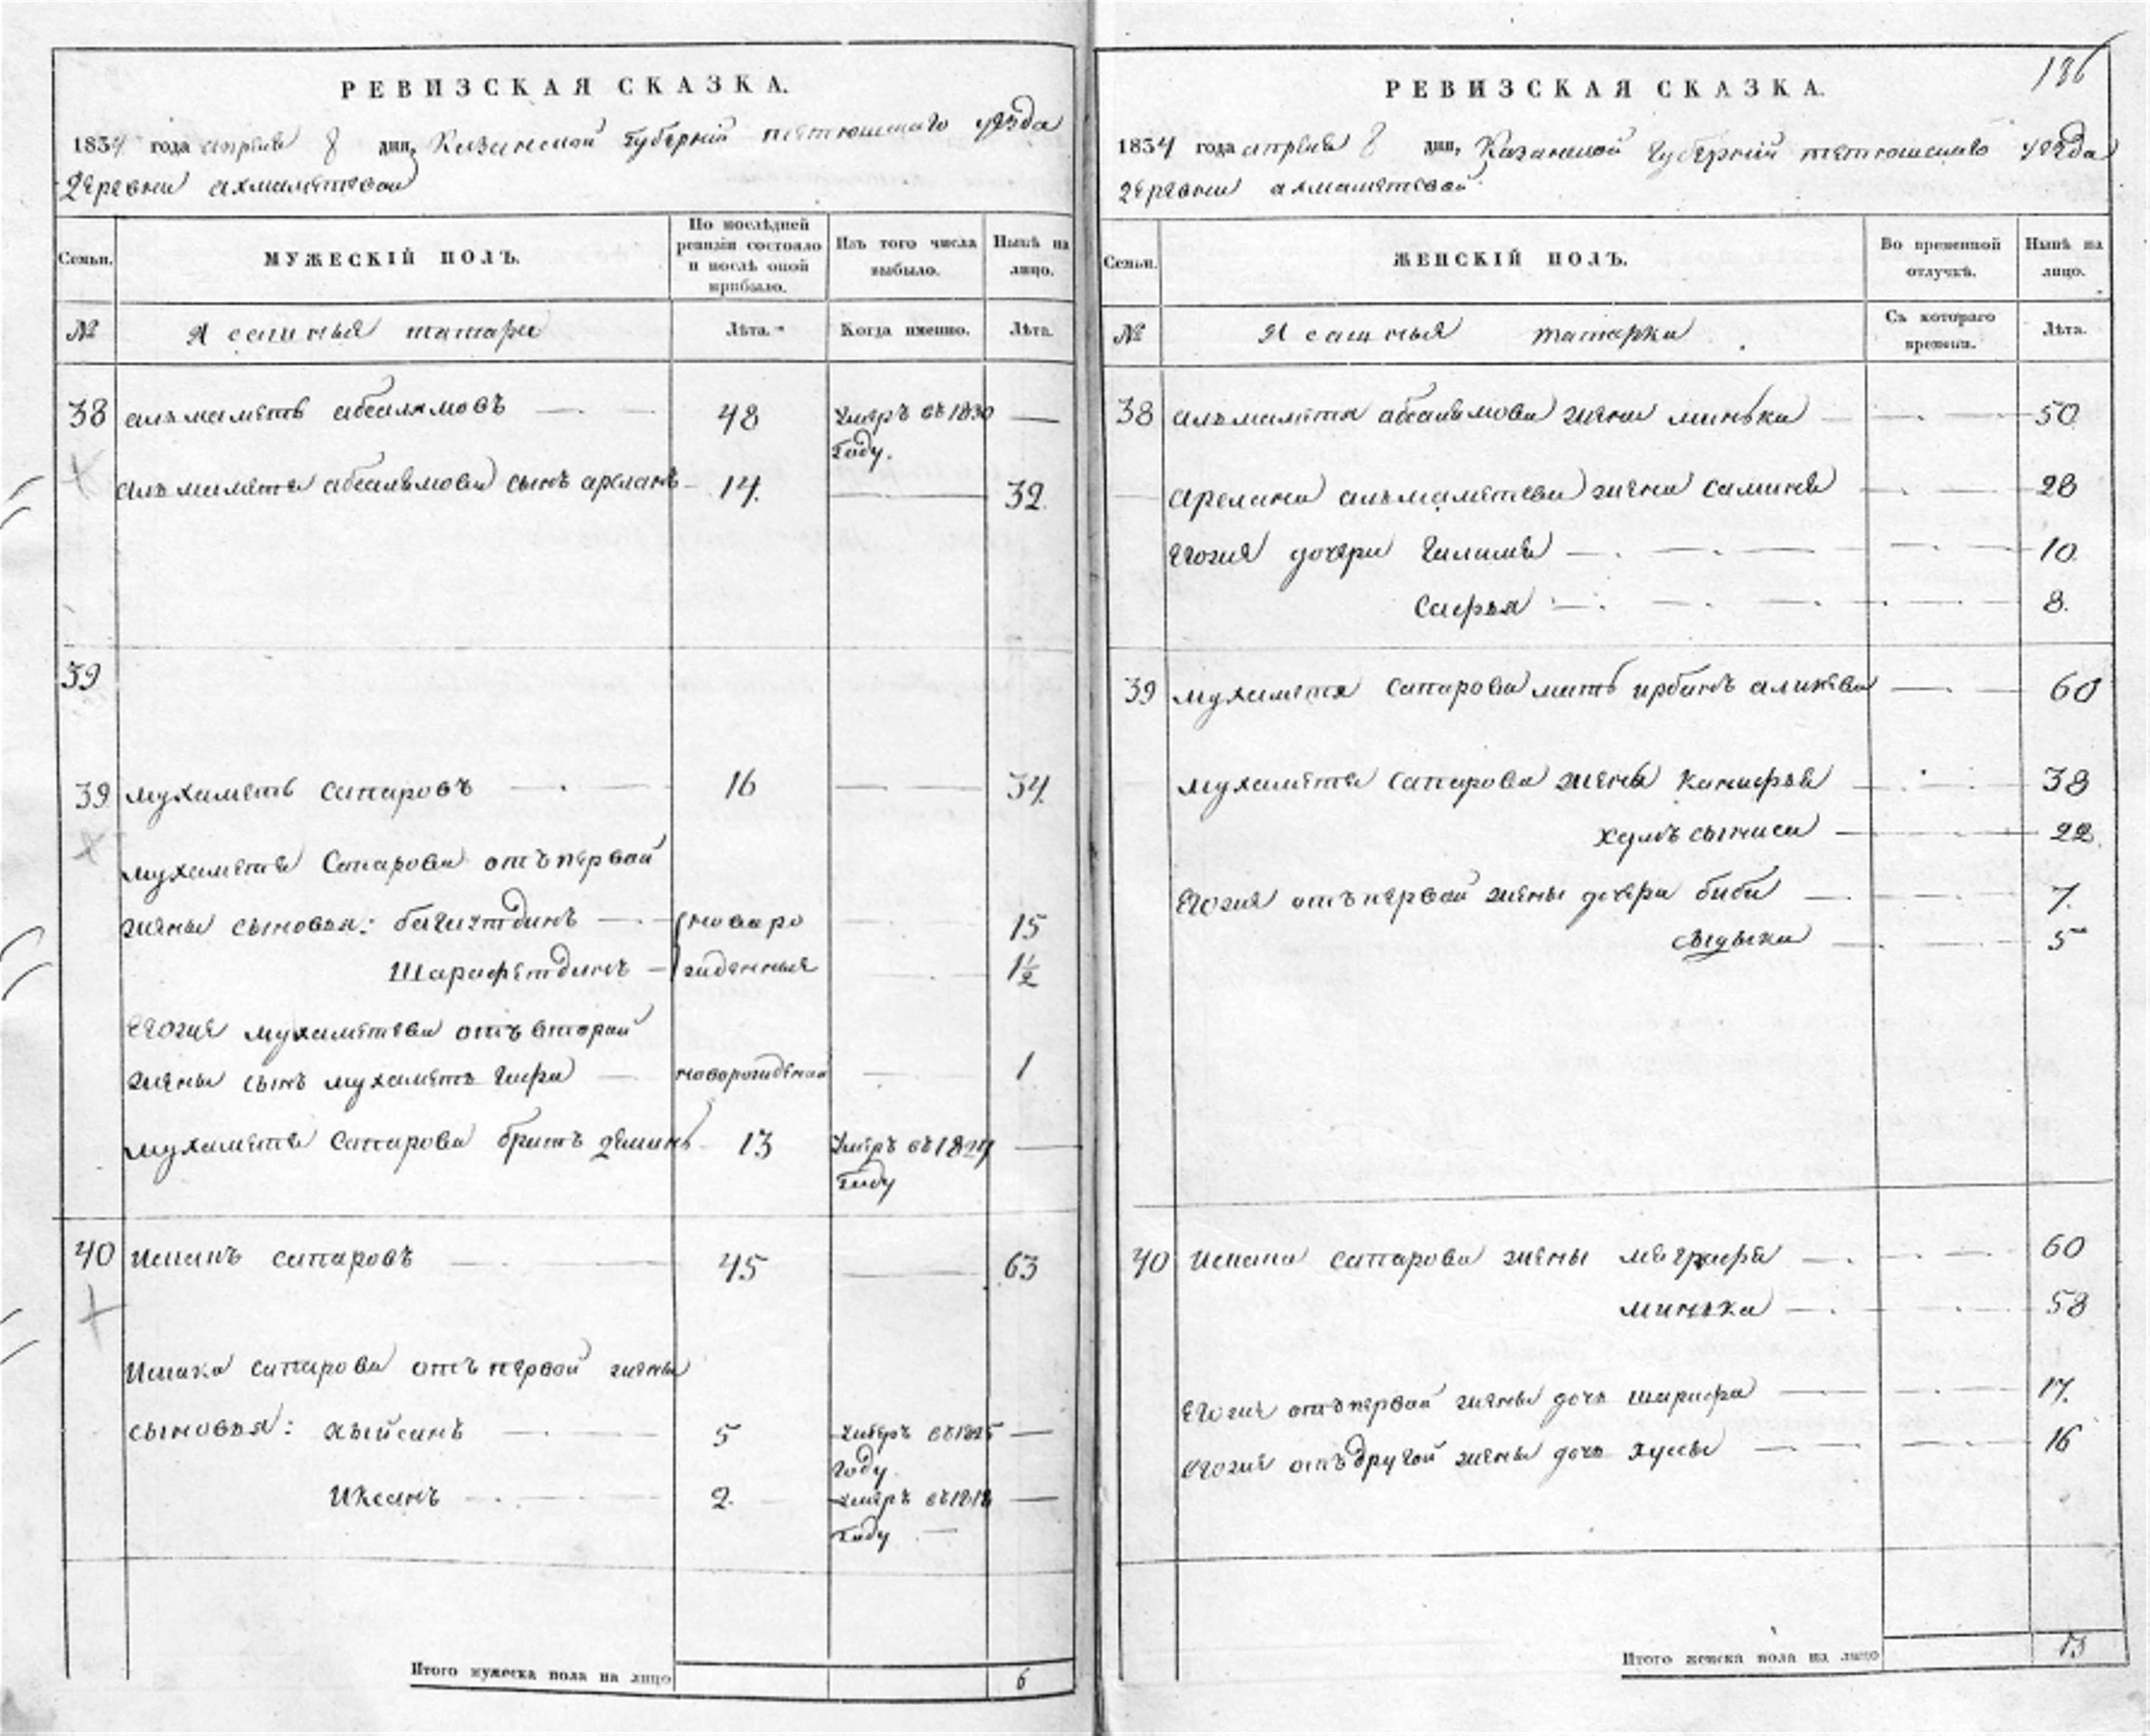 РЕВИЗСКАЯ СКАЗКА.
1834 года апреля 8 дня, Казанской губернии тетюшскаго уезда
деревни ахмаметевой
Семьи. МУЖЕСКІЙ ПОЛЪ. По послѣдней ревизіи состояло и послѣ оной прибыло. Изъ того числа выбыло. Нынѣ на лицо.
№ Ясашныя татары Лѣта. Когда именно. Лѣта.
38 альмаметь абсалямовъ 48 Умеръ въ 1830 году.
альмаметя абсалямова сынъ арсланъ 14. 32.
39
39 мухаметь сапаровъ 16 34.
мухаметя Сапарова отъ первой
жены сыновья: багаутдинъ новоро 15
Шарафетдинъ жденныя 1½
Егоже мухаметева отъ второй
жены сынъ мухаметь гафа новорожденной 1
мухаметя Сапарова братъ 13 Умеръ въ 1824 году
40 Исхакъ сапаровъ 45 63
Исхака сапарова отъ первой жены
сыновья: хыйсанъ 5 Умеръ въ 1825 году.
Иксанъ 2. Умеръ въ 1818 году
Итого мужеска пола на лицо 6
186
РЕВИЗСКАЯ СКАЗКА.
1834 года апреля 8 дня, Казанской Губерніи тетюшскаго уезда
деревни ахмаметевой
Семьи. ЖЕНСКІЙ ПОЛЪ. Во временной отлучкѣ. Нынѣ на лицо.
№ Ясашныя татарки Съ котораго времени. Лѣта.
38 альмаметя абсалямова жена минька 50
арслана альмаметева жена саминя 28
Егожя дочери Галимя 10.
Сафья 8.
39 мухаметя Сапарова мать ирбика 60
мухаметя Сапарова жены 38
22.
Егожя отъ первой жены дочери биби 7.
5
40 Исхака сапарова жены 60
минька 58
Егоже отъ первой жены дочь шарифа 17.
Егоже отъ другой жены дочь 16
Итого женска пола на лицо 13